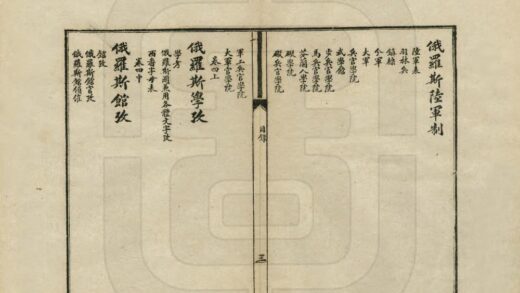 俄羅斯陸軍制
陸軍表
羽林兵
鎮標
分軍
大軍
兵官學院
武學館
步兵官學院
馬兵官學院
礮學院
礮兵官學院
目錄
三
軍工兵官學院
大軍官學院
卷四上
俄羅斯學攷
學考
俄羅斯國兼用各種文字攷
西番字母表
卷四中
俄羅斯館攷
館攷
俄羅斯館官攷
俄羅斯館領催